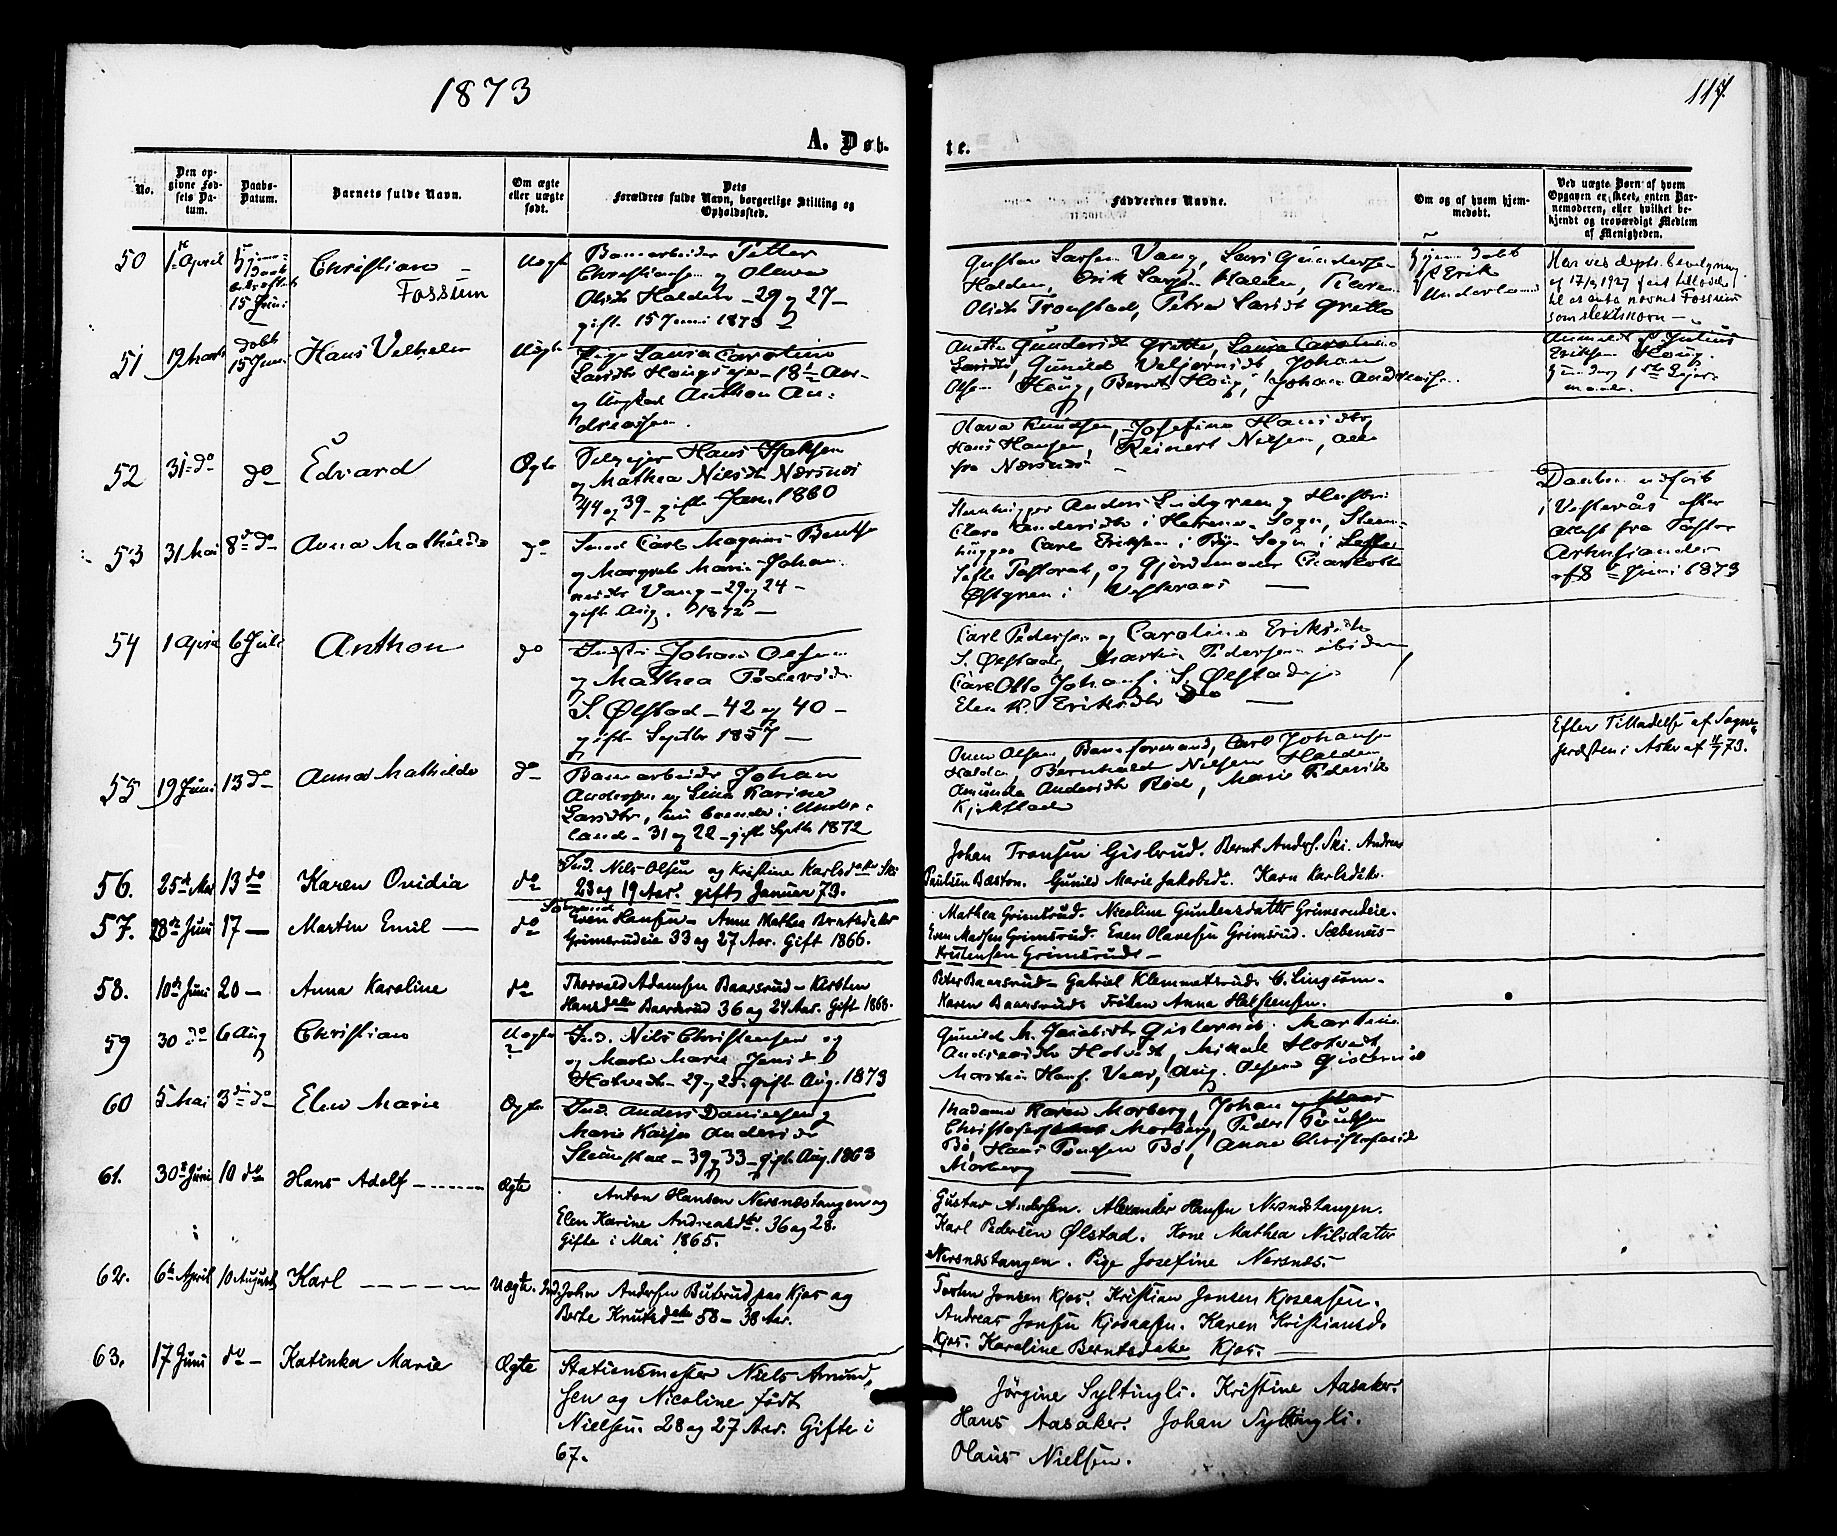 1873
117.
A. Døb-
te.
No.
Den op-
givne Fød-
sels Da-
tum.
Daabs-
Datum.
Barnets fulde Navn.
Om ægte
eller uægte
født.
Dets
Forældres fulde Navn, borgerlige Stilling og
Opholdssted.
Faddernes Navne.
Om og af hvem hjem-
medøbt.
Ved uægte Børn af hvem
Opgaven er skeet, enten Bar-
nemoderen, eller hvilket be-
kjendt og troværdigt Medlem
af Menigheden.
50
1 April
15 Juni
Christian
Fossum
Uægte
Banearbeider Petter
Christiansen og Olava
Olsdtr Halden - 29 og 27 -
gift 15 Juni 1873
Gustav Larsen Vang, Lars Gundersen
Halden, Erik Larsen Halden, Karen
Olsdtr Tronstad, Petra Larsdt Grette
Hjemmedøbt
af Erik
Underland
Har ved dept. bevilgning
af 17/3 1927 faat tilladelse
til at anta navnet Fossum
som slektsnavn -
51
19 Marts
døbt
15 Juni
Hans Vilhelm
Uægte
Pige Laura Caroline
Larsdtr Haugseje - 18 1/2 Aar -
og Ungkarl Anthon An-
dreassen.
Anette Gundersdt Grette, Laura Caroline
Larsdtr, Gunild Veljørnsdt, Johan
Olsen Haug, Bernt Haug, Johan Andreassen
Anmeldt af Julius
Eriksen Haug.
52
31 do
do
Edvard
Ægte
Hans Isaksen
og Mathea Nilsdt Nærsnes
44 og 39 - gifte Jan. 1860
Olava Knudsen, Josefine Hansdtr,
Hans Hansen, Reinert Nilsen, alle
fra Nærsnes -
53
31 Mai
8de do
Anna Mathilde
do
Smed Carl Magnus Bentz
og Margrete Marie Johan-
nesdtr Vang - 29 og 24 -
gifte Aug. 1872 -
Stenhugger Anders Lindgren og Hustru
Clara Andersdtr i Sogn, Sten-
hugger Carl Eriksen i Sogn i
Pastorat, og Gjordemoder Charlotte
Østgren i Vesteraas -
Daaben udført
i Vesterås efter
attest fra Pastor
af 8 Juni 1873
54
1 April
6 Juli
Anthon
do
Johan Olsen
og Mathea Pedersdtr
S. Ølstad - 42 og 40 -
gifte Septbr 1857 -
Carl Pedersen og Caroline Eriksdtr
S. Ølstad, Martin Pedersen ibidem,
Carl Otto Johans. S. Ølstadeje
Elen K. Eriksdtr do -
55
19 Juni
13 do
Anna Mathilde
do
Banearbeider Johan
Andersen og Lina Karine
Larsdtr, nu boende i Under-
land - 31 og 22 - gifte Septbr 1872
Olsen, Baneformand, Carl Johansen
Halden, Bernhald Nilsen Halden,
Amunda Andersdt Rød, Marie Pedersdtr
Kjekstad
Efter Tilladelse af Sogne-
præsten i Asker af 11/7 73.
56.
25de Mai
13 do
Karen Ovidia
do
Ind. Nils Olsen og Kristine Karlsdatter Ski
23 og 19 Aar. gifte Januar 73.
Johan Tronsen Gisbrud. Bernt Anders. Ski. Andreas
Paulsen Bæston. Gunild Marie Jakobsdr. Karn Karlsdatr.
57.
28de Juni
17 -
Martin Emil
do
Even Hansen - Anne Mathea Berntsdatter
Grimsrudeie 33 og 27 Aar. Gift 1866.
Mathea Grimsrud. Nicoline Gundersdatter Grimsrudeie.
Even Madsen Grimsrud. Even Olavesen Grimsrud. Sæbenius
Kristensen Grimsrud. -
58.
10de Juni
20 -
Anna Karoline
do
Thorvald Adamsen Baarsrud - Kirsten
Hansdatr Baarsrud 36 og 24 Aar. Gifte 1868.
Peter Baarsrud - Gabriel Klemmetsrud. C. Lingsom.
Karen Baarsrud. Frøken Anna Helgesen.
59
30 do
6 Aug
Christian
Uægte
Ind. Nils Christensen og
Marte Marie Jensdtr
Hotvedt - 29 og 25 - gift Aug. 1873
Gunild M. Jacobsdtr Gisternes, Martin
Andreasdtr Hotvedt, Mikal Hotvedt,
Morten Hans. Vaar, Aug. Olsen Gisternes
60
5 Mai
3die do
Elen Marie
Ægte
Ind. Anders Danielsen og
Marie Kaisa Andersdtr
Slemstad - 39 og 33 - gift Aug. 1863
Madame Karen Morberg, Johan
Christofer Morberg, Peder Poulsen
Bø, Hans Poulsen Bø, Anne Christofersd
Morberg
61.
30de Juni
10 do
Hans Adolf
Ægte
Anton Hansen Nersnestangen og
Elen Karine Andreasdtr. 36 og 28.
Gifte i Mai 1865.
Gustav Andersen. Alexander Hansen Nersnestangen.
Karl Pedersen Ølstad. Kone Mathea Nilsdatter
Nersnestangen. Pige Josefine Nersnes.
62.
6te April
10 August
Karl
Uægte.
Ind. John Andersen Butrud paa Kjos og
Berte Knutsdatr 58 - 38 Aar.
Torsten Jonsen Kjos. Kristian Jonsen Kjoseasen.
Andreas Jonsen Kjoseasen. Karen Kristiansd.
Kjos. Karoline Berntsdatr Kjos. -
63.
17 Juni
do -
Katinka Marie
Ægte
Stationsmester Niels Amund-
sen og Nicoline født
Nielsen. 28 og 27 Aar. Gifte i
67.
Jørgine Syltingli. Kristine Aasaker.
Hans Aasaker. Johan Syltingli.
Olaus Nielsen.